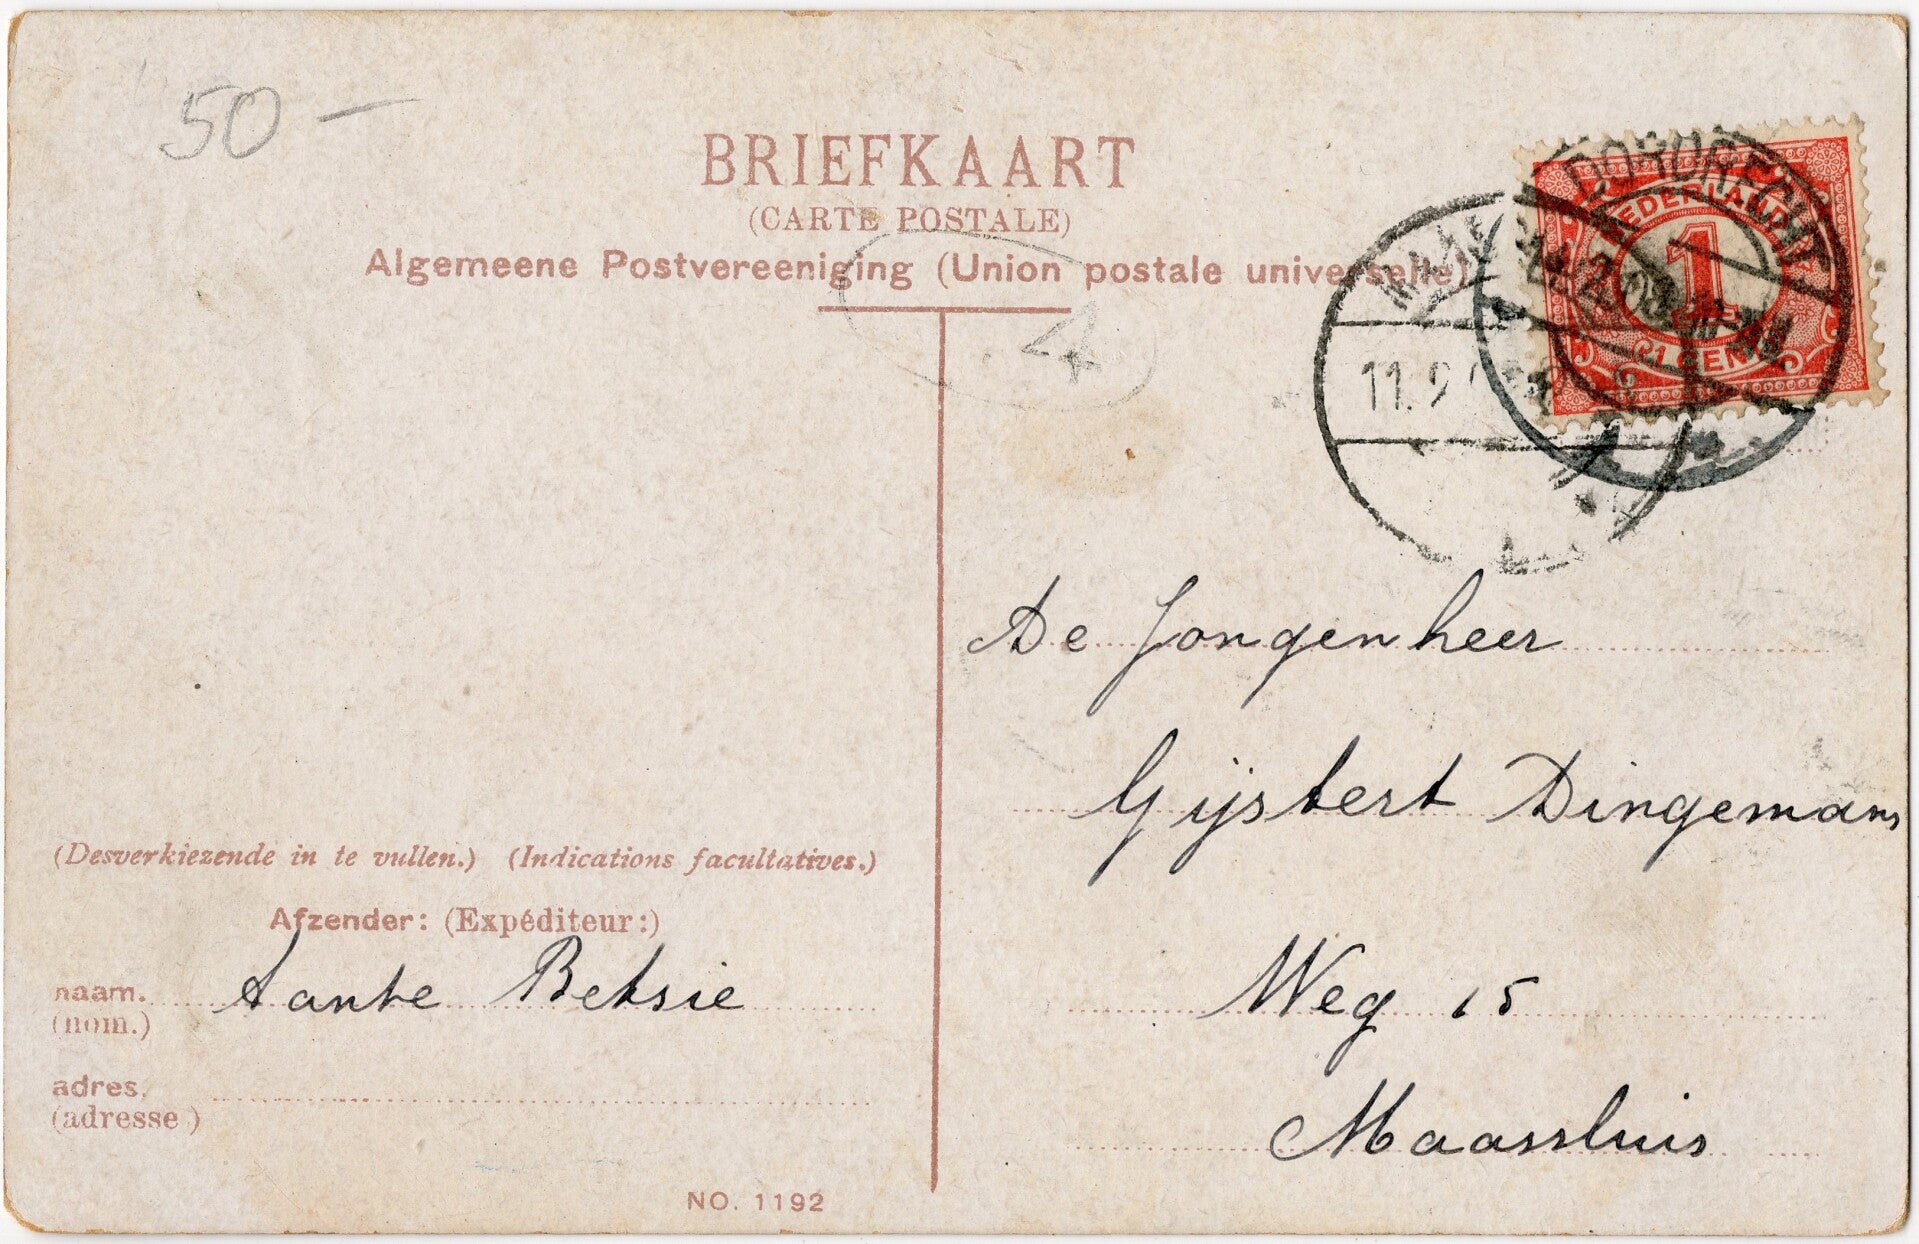 50 –
BRIEFKAART
(CARTE POSTALE)
Algemeene Postvereeniging (Union postale universelle)
4
DORDRECHT
NEDERLAND
1
CENT
11.2
De Jongenheer
Gijsbert Dingemans
Weg 15
Maassluis
(Desverkiezende in te vullen.) (Indications facultatives.)
Afzender: (Expéditeur:)
naam. tante Betsie
(nom.)
adres.
(adresse)
NO. 1192